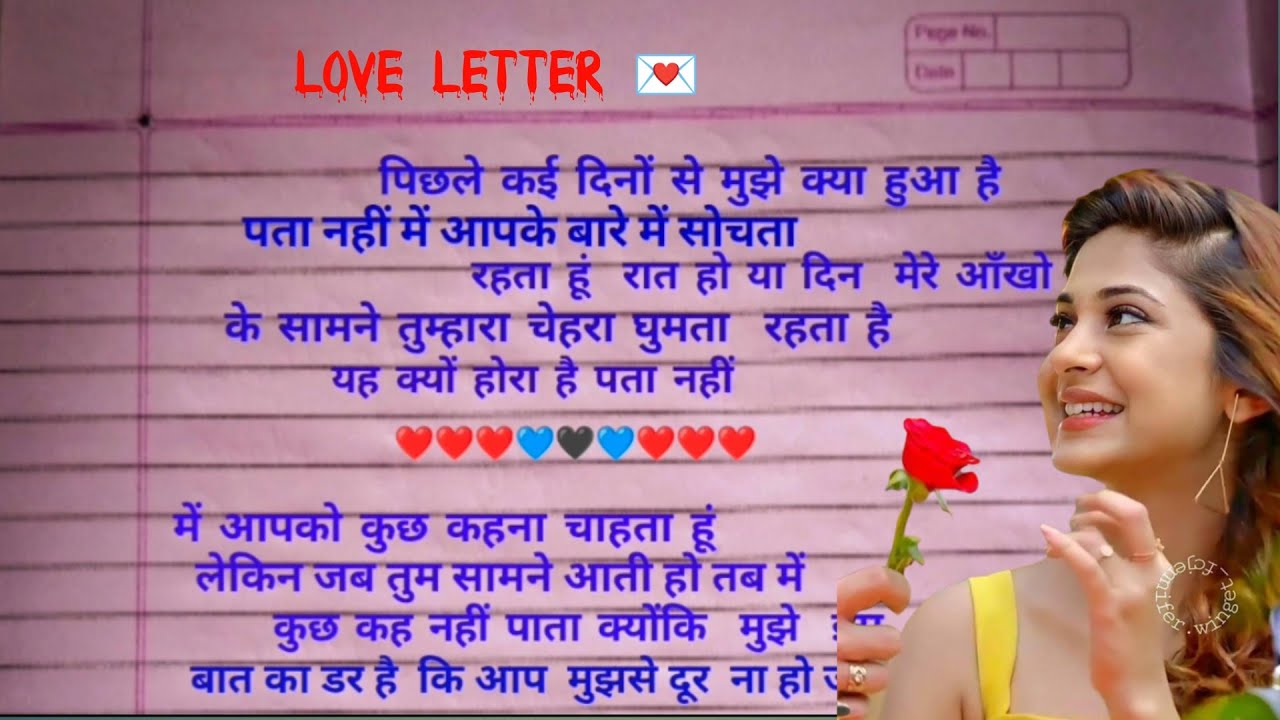 Page No.
Date
LOVE LETTER 💌
पिछले कई दिनों से मुझे क्या हुआ है
पता नहीं में आपके बारे में सोचता
रहता हूं रात हो या दिन मेरे आँखो
के सामने तुम्हारा चेहरा घुमता रहता है
यह क्यों होरा है पता नहीं
❤️❤️❤️💙🖤💙❤️❤️❤️
में आपको कुछ कहना चाहता हूं
लेकिन जब तुम सामने आती हो तब में
कुछ कह नहीं पाता क्योंकि मुझे
बात का डर है कि आप मुझसे दूर ना हो